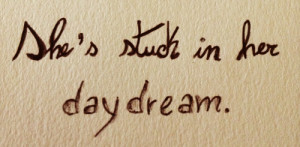 She's stuck in her
day dream.